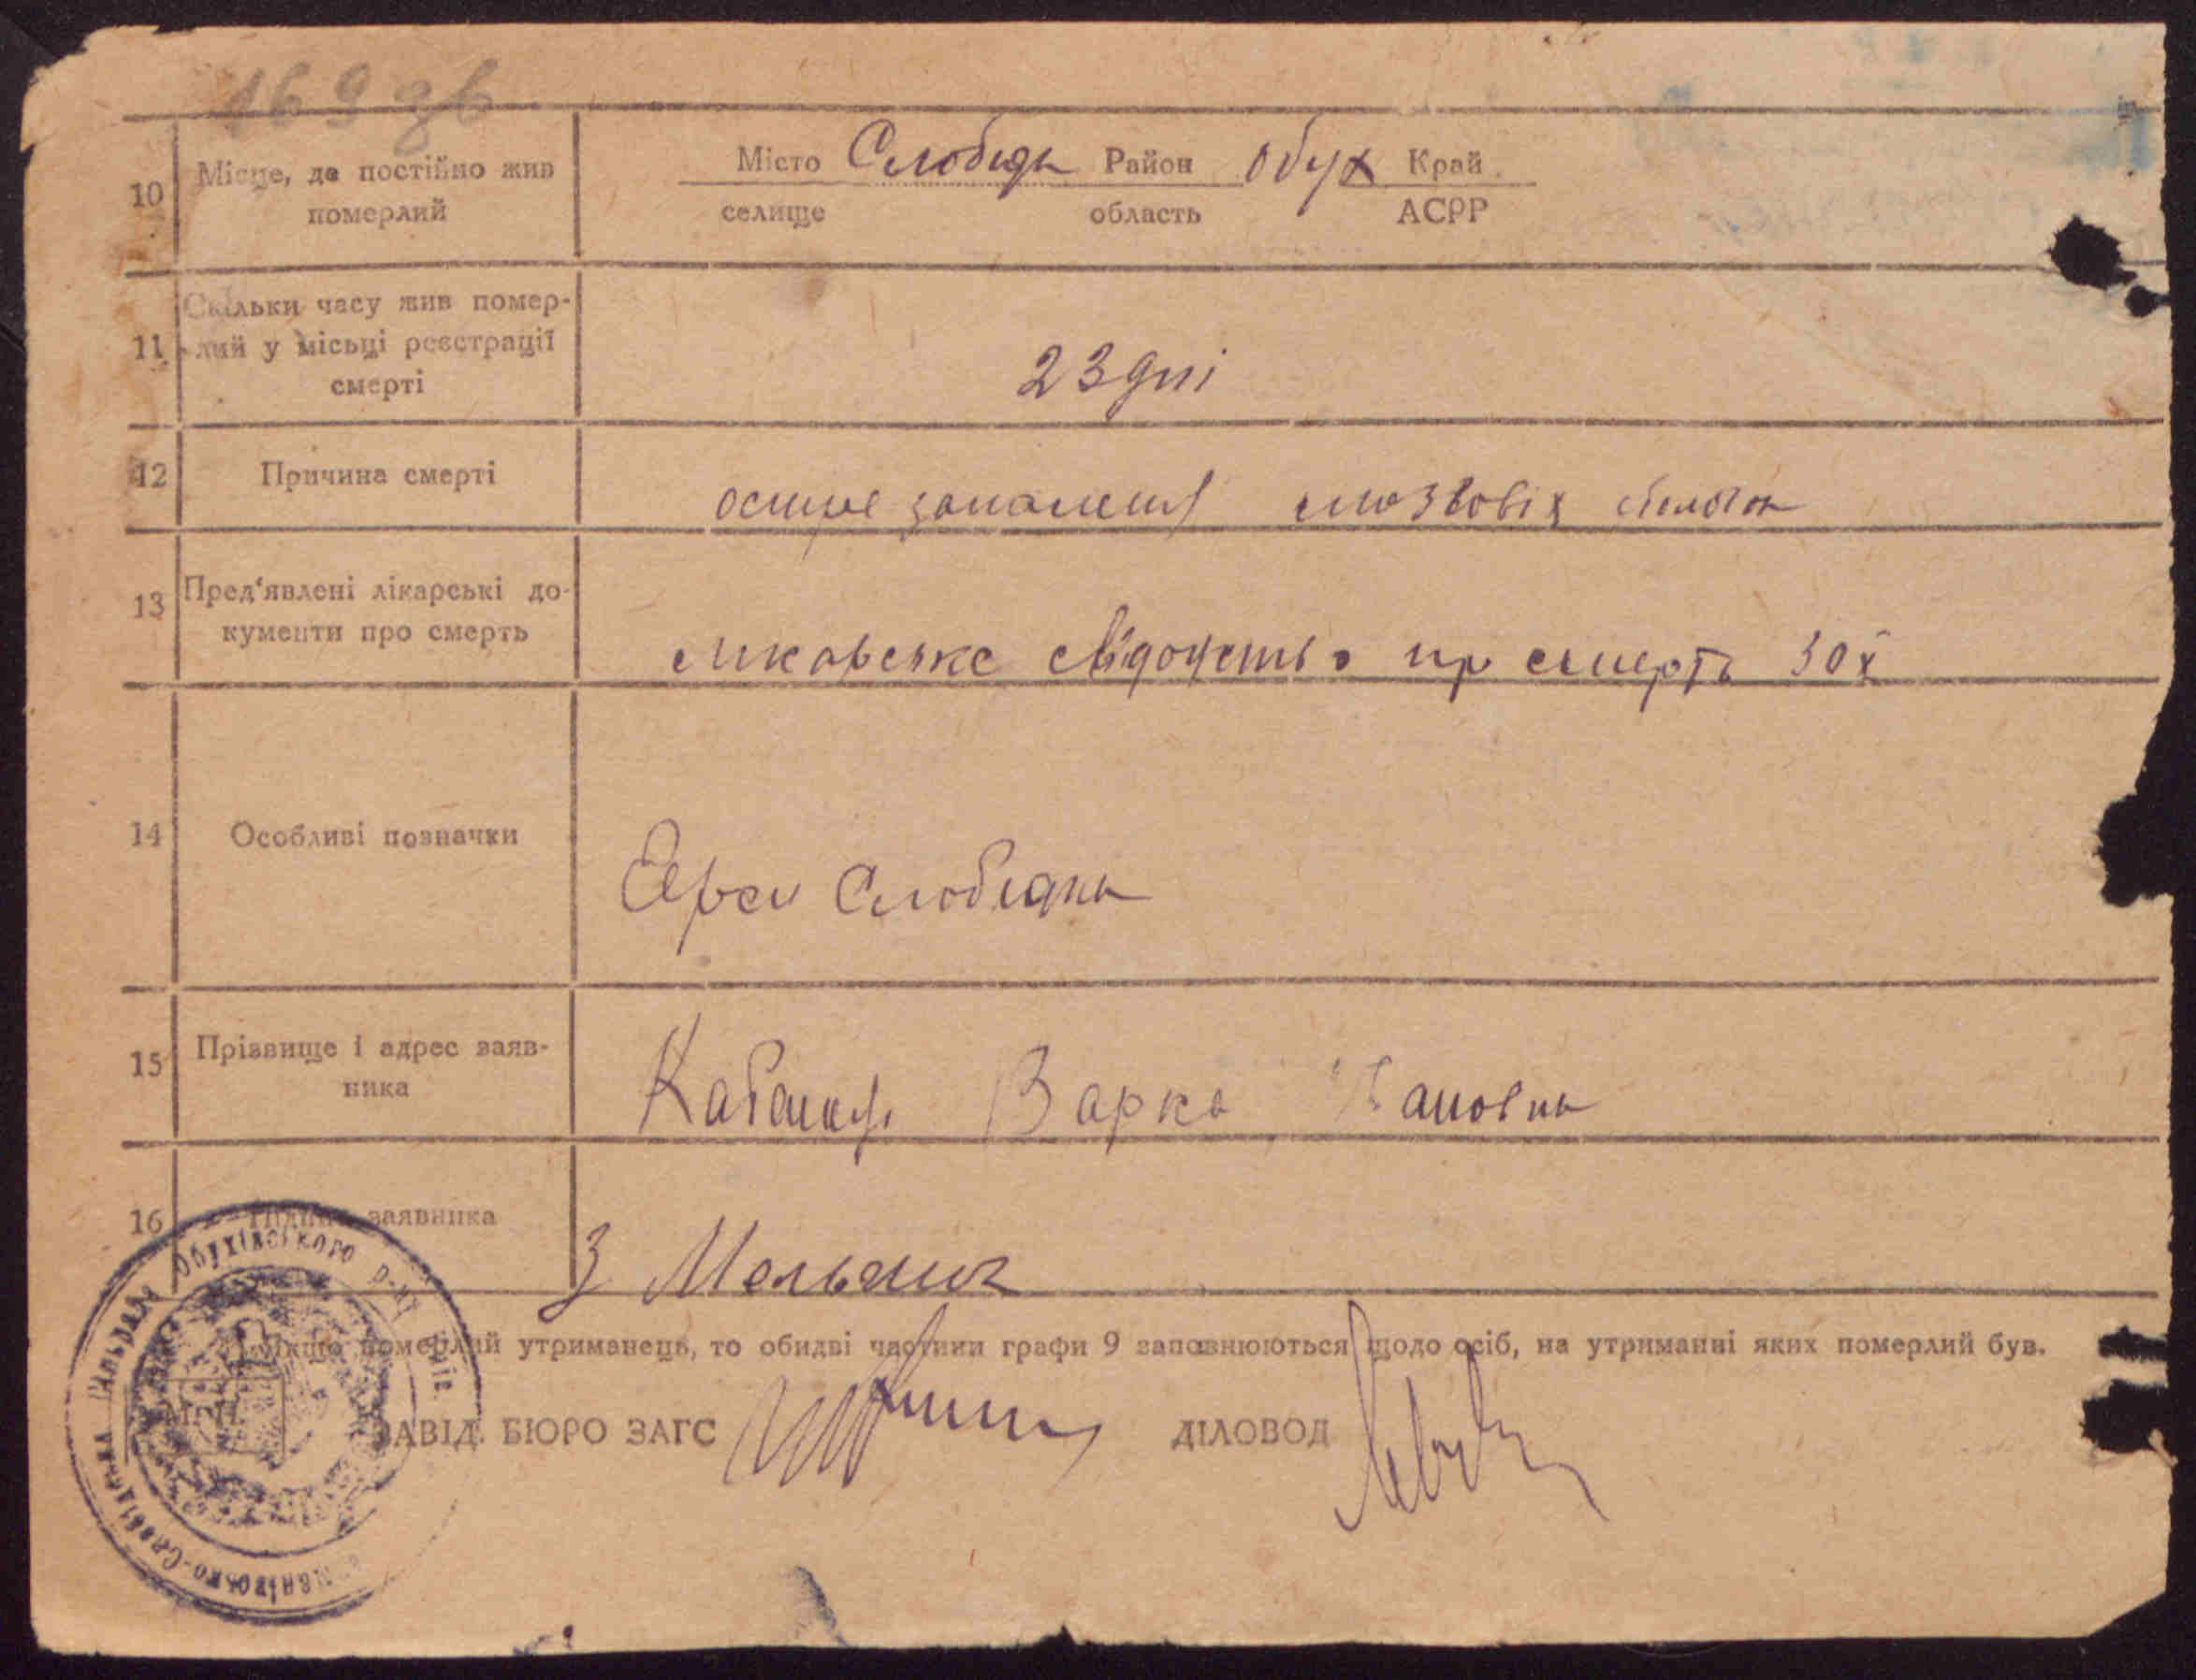 169 зв
10 Місце, де постійно жив померлий
Місто Слобидк Район Обух Край
селище область АСРР
11 Скільки часу жив помер-
лий у місьці реєстрації
смерті
23 дні
12 Причина смерті
остре запалення мозговіх
13 Пред'явлені лікарські до-
кументи про смерть
ликарське свидоцтво пр смерть 30х
14 Особливі позначки
Слобидка
15 Прізвище і адрес заяв-
ника
Варка
16 заявника
З Мельник
померлий утриманець, то обидві частини графи 9 заповнюються щодо осіб, на утриманні яких померлий був.
ЗАВІД. БЮРО ЗАГС ДІЛОВОД
Сільрада Обухівського р-ну